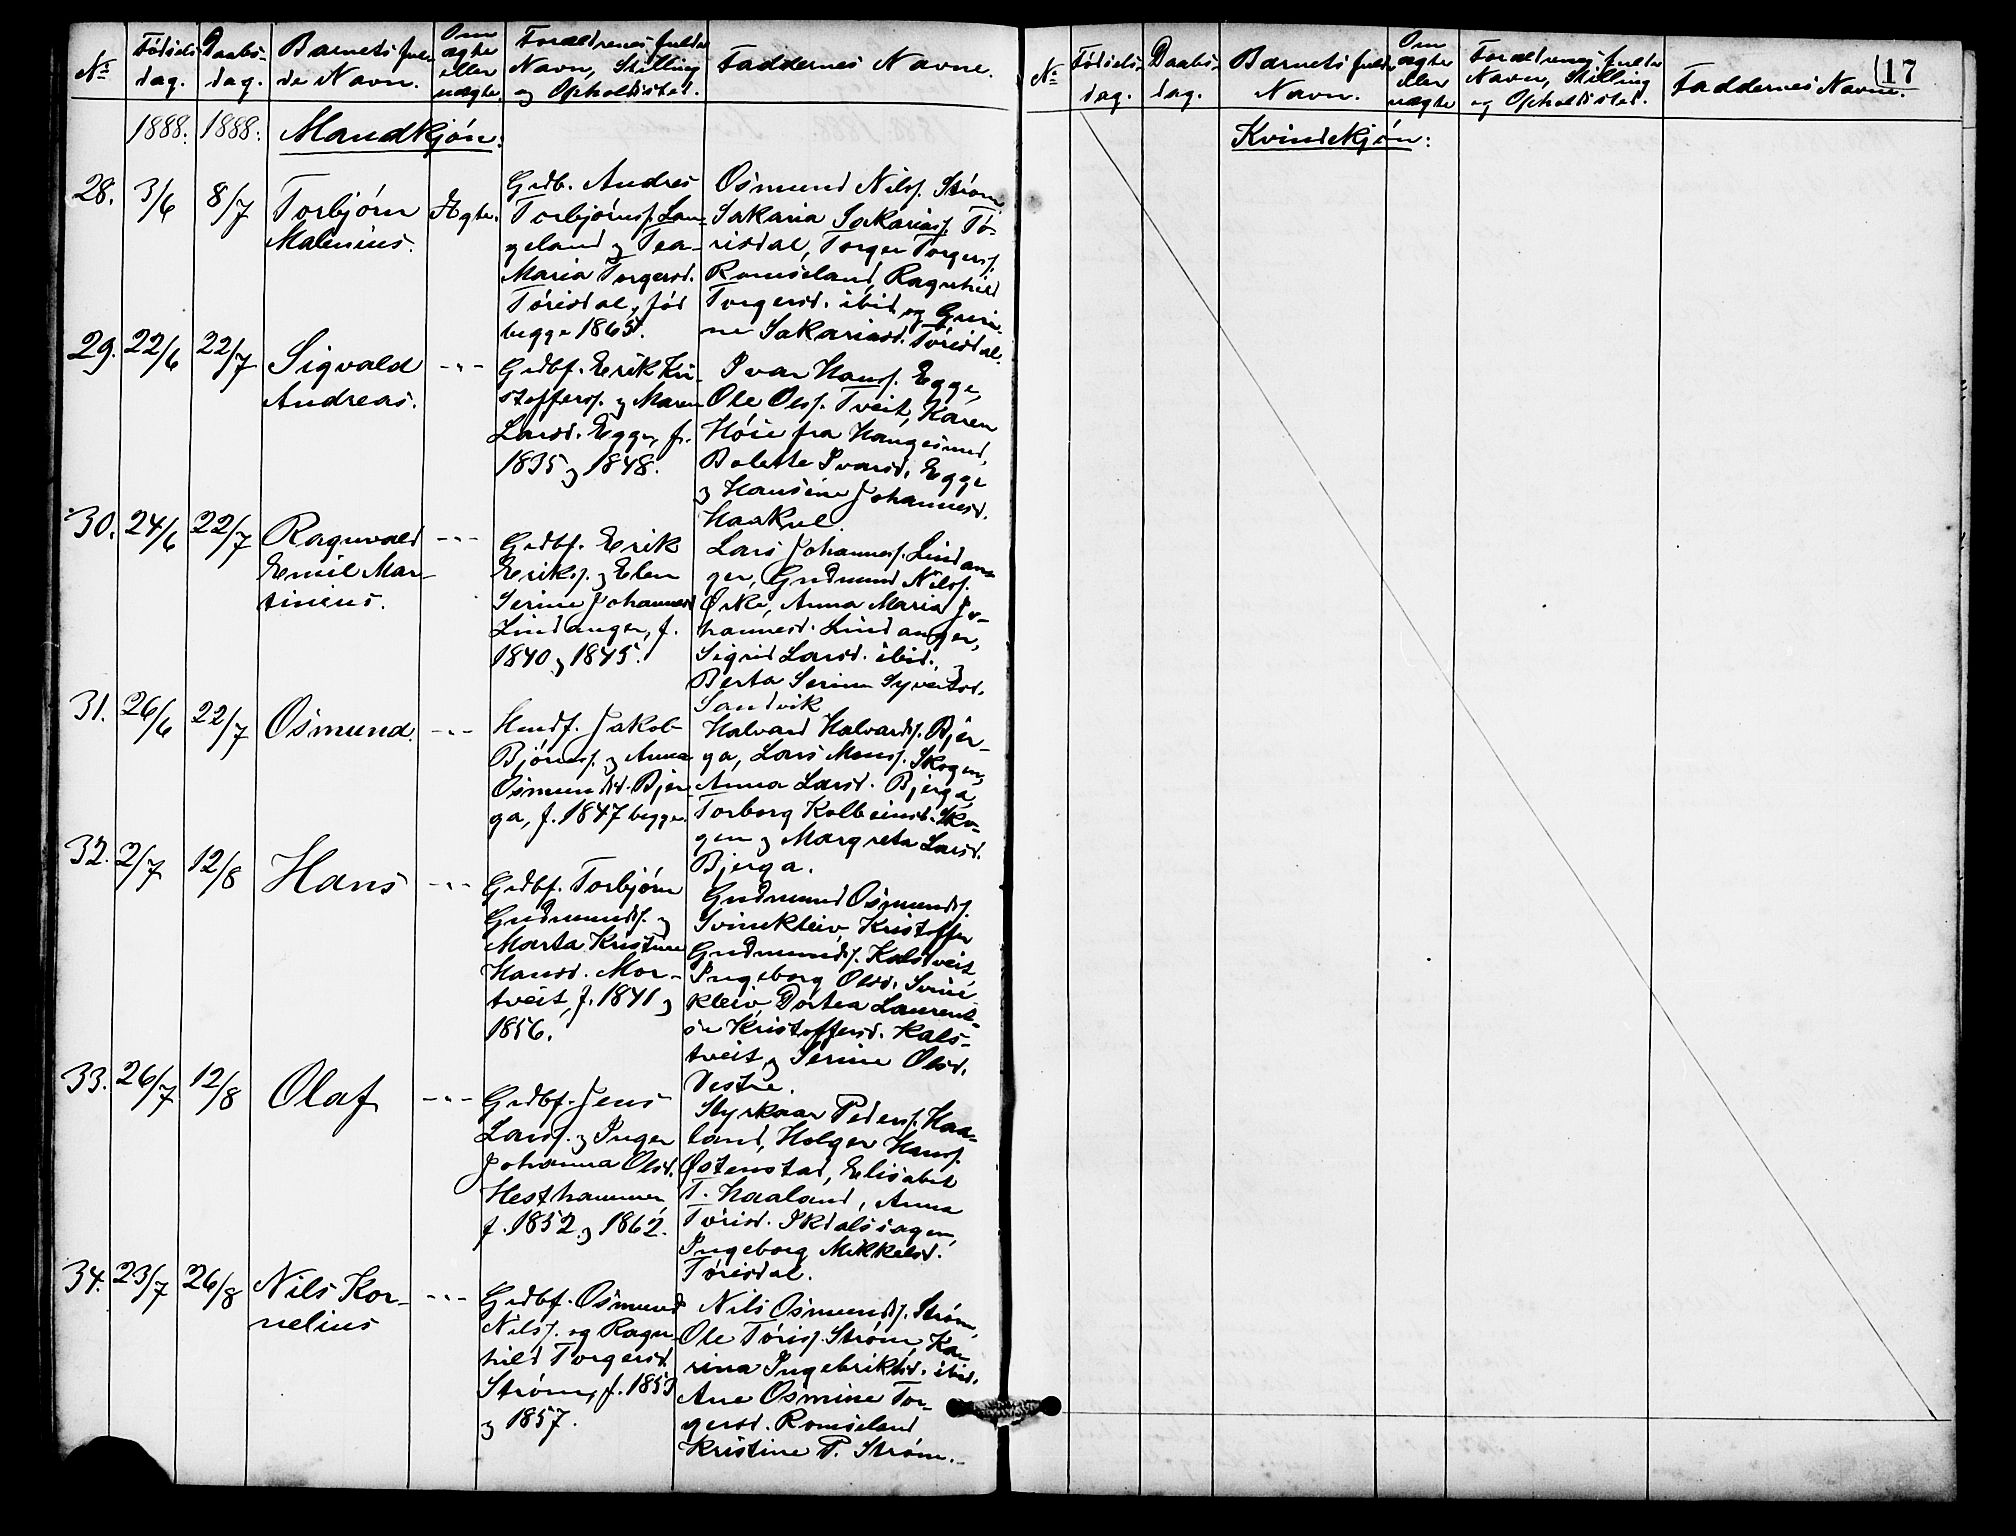 No
Fødsels-
dag.
Daabs-
dag.
Barnets ful-
de Navn.
Om
ægte
eller
uægte.
Forældrenes fulde
Navn, Stilling
og Opholdssted.
Faddernes Navne.
1888.
1888.
Mandkjøn:
28.
3/6
8/7
Torbjørn
Malenius.
Ægte.
Grdb. Andres
Torbjørnss. Lan-
geland og Tea
Maria Torgersd.
Tørisdal, fød
begge 1865.
Osmund Nilss. Strøm
Sakaria Sakariass. Tø-
risdal, Torger Torgerss.
Romseland, Ragnhild
Torgersd. ibid og Guri-
ne Sakariasd. Tørisdal.
29.
22/6
22/7
Sigvald
Andreas.
- " -
Grdbf. Erik Kri-
stofferss. og Maren
Larsd. Egge, f.
1835 og 1848.
Ivar Hanss. Egge,
Ole Olss. Tveit, Karen
Høie fra Haugesund,
Bolette Ivarsd. Egge
og Hansine Johannesd.
Haakul.
30.
24/6
22/7
Ragnvald
Emil Mar-
tinius.
- " -
Grdbf. Erik
Erikss. og Elen
Serine Johannesd
Lindanger, f.
1840 og 1845.
Lars Johanness. Lindan-
ger, Gudmund Nilss.
Ørke, Anna Maria Jo-
hannesd. Lindanger,
Sigrid Larsd. ibid. og
Berta Serine Syvertsd.
Sandvik
31.
26/6
22/7
Osmund.
- " -
Hmdf. Jakob
Bjørnss. og Anna
Osmundsd. Bjer-
ga, f. 1847 begge.
Halvard Halvardss. Bjer-
ga, Lars Monss. Skogen,
Anna Larsd. Bjerga,
Torborg Kolbeinsd. Sko-
gen og Margreta Larsd.
Bjerga.
32.
2/7
12/8
Hans
- " -
Grdbf. Torbjørn
Gudmundss. og
Marta Kristine
Hansd. Mor-
tveit, f. 1841 og
1856.
Gudmund Osmundss.
Svinekleiv, Kristoffer
Gudmundss. Kalstveit
Ingeborg Olsd. Svine-
kleiv, Dortea Laurent-
se Kristoffersd. Kals-
tveit og Serine Olsd.
Vestre.
33.
26/7
12/8
Olaf
- " -
Grdbf. Jens
Larss. og Inger
Johanna Olsd.
Hesthammer,
f. 1852 og 1862.
Styrkaar Pederss. Haa-
land, Holger Hanss.
Østenstad, Elisabet
T. Haaland, Anna
Tørisd. Økdalsiagen,
Ingeborg Mikkelsd.
Tørisdal.
34.
23/7
26/8
Nils Kor-
nelius
- " -
Grdbf. Osmund
Nilss. og Ragn-
hild Torgersd.
Strøm, f. 1853
og 1857.
Nils Osmundss. Strøm,
Ole Tøriss. Strøm, Ka-
rina Ingebriktsd. ibid.
Ane Osmine Tor-
gersd. Romseland
Kristine P. Strøm.
No
Fødsels-
dag.
Daabs-
dag.
Barnets fulde
Navn.
Om
ægte
eller
uægte
Forældrenes fulde
Navn, Stilling
og Opholdssted.
Faddernes Navne.
17
Kvindekjøn: